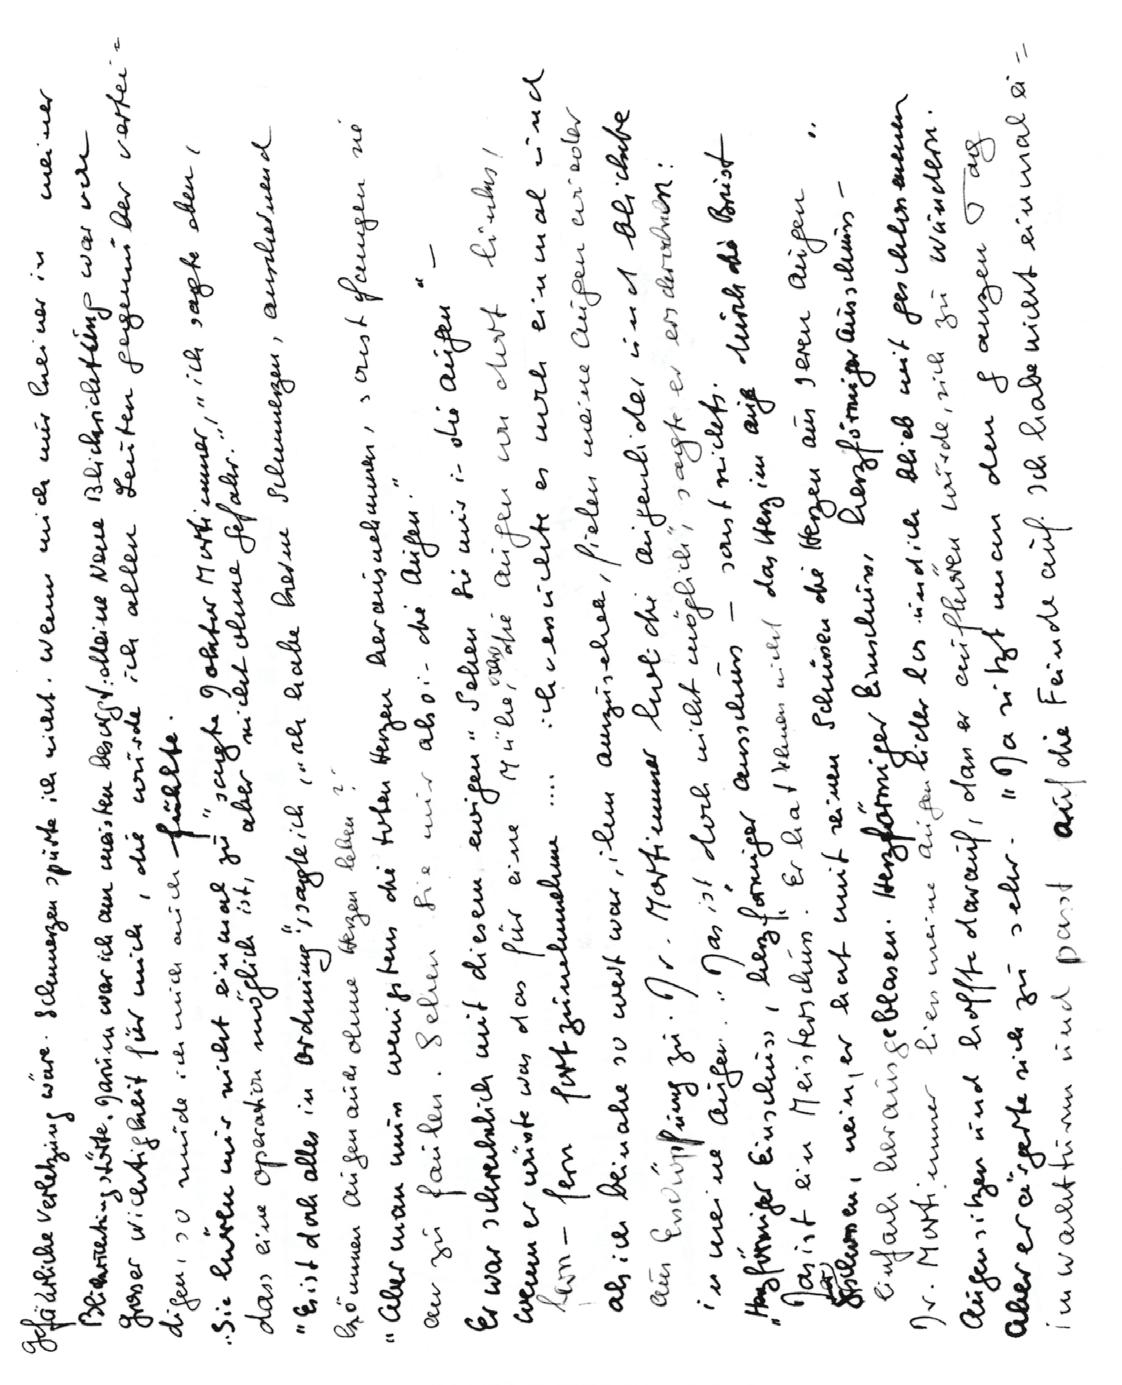 gefährliche Verletzung wäre. Schmerzen spürte ich nicht. Wenn mich nur keiner in meiner
Blickrichtung störte. Darum war ich am meisten besorgt: alleine Neue Blickrichtung war von
grosser Wichtigkeit für mich, die würde ich allen Leuten gegenüber vertei=
digen, so müde ich mich auch fühlte.
"Sie hören mir nicht einmal zu" sagte Doktor Mortimer, "ich sagte eben,
dass eine Operation möglich ist, aber nicht ohne Gefahr."
"Es ist doch alles in Ordnung", sagte ich, "ich habe keine Schmerzen, anscheinend
können Augen auch ohne Herzen leben?"
"Aber man muss wenigstens die toten Herzen herausnehmen, sonst fangen sie
an zu faulen. Sehen Sie mir also in die Augen."
Er war schrecklich mit diesem ewigen "Sehen Sie mir in die Augen" –
wenn er wüsste was das für eine Mühe, die Augen von dort links,
fern – fern fortzunehmen .... ich versuchte es noch einmal und
als ich beinahe so weit war, ihn anzusehen, fielen meine Augen wieder
aus Erschöpfung zu. Dr. Mortimer hob die Augenlider und blickte
in meine Augen. "Das ist doch nicht möglich", sagte er erschrocken:
"Herzförmiger Einschuss, herzförmiger Ausschuss – sonst nichts.
Das ist ein Meisterschuss. Er hat Ihnen nicht das Herz im Auge durch die Brust
geschossen, nein, er hat mit seinen Schüssen die Herzen aus Ihren Augen
einfach herausgeblasen. Herzförmiger Einschuss, herzförmiger Ausschuss –"
Dr. Mortimer liess meine Augenlider los und ich blieb mit geschlossenen
Augen sitzen und hoffte darauf, dass er aufhören würde, sich zu wundern.
Aber er ärgerte sich zu sehr. "Da sitzt man den ganzen Tag
im Wachtturm und passt auf die Feinde auf. Ich habe nicht einmal ei=